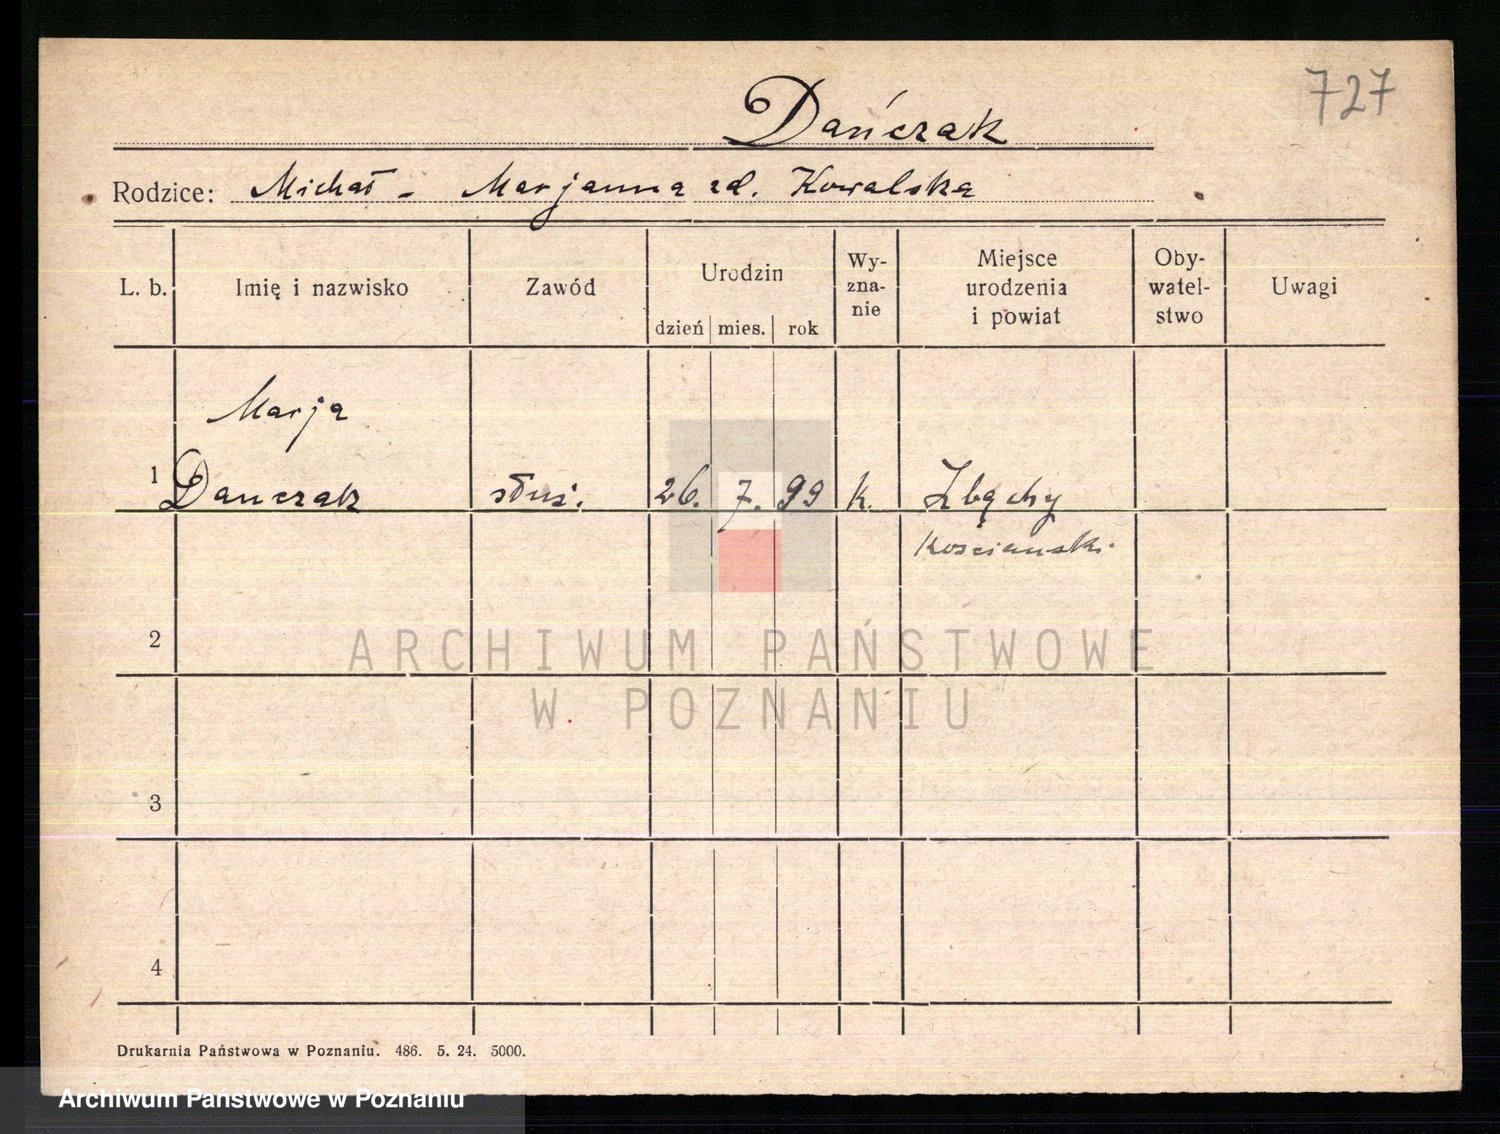 727
Dańczak
Rodzice: Michał - Marjanna zd. Kowalska
L. b. Imię i nazwisko Zawód Urodzin dzień mies. rok Wy-zna-nie Miejsce urodzenia i powiat Oby-watel-stwo Uwagi
Marja
1 Danczak służ. 26. 7. 99 k. Zbąchy
Kościański.
2
ARCHIWUM PAŃSTWOWE
W POZNANIU
3
4
Drukarnia Państwowa w Poznaniu. 486. 5. 24. 5000.
Archiwum Państwowe w Poznaniu